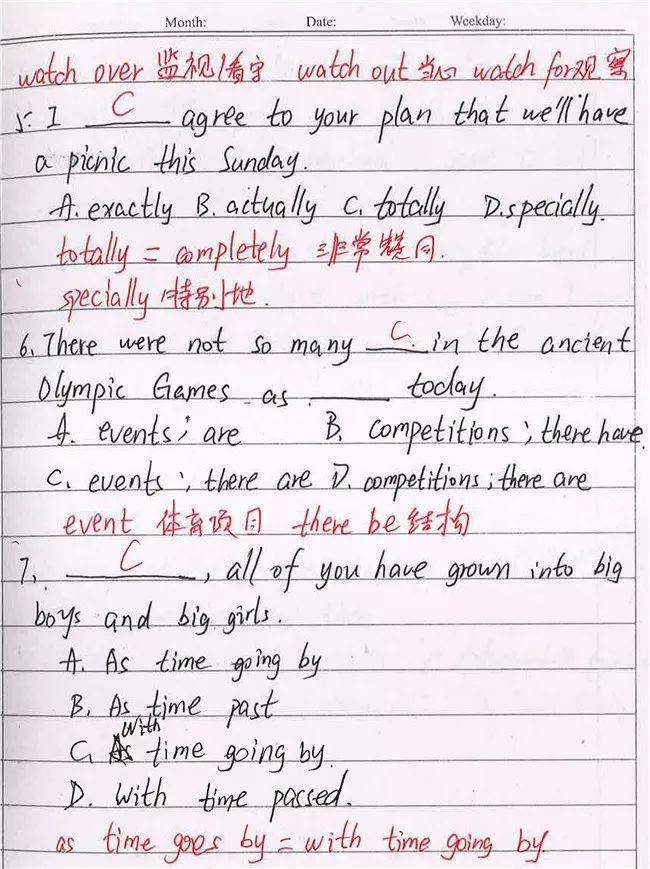 Month: Date: Weekday:
watch over 监视/看守 watch out 当心 watch for 观察
5. I C agree to your plan that we'll have
a picnic this Sunday.
A. exactly B. actually C. totally D. specially.
totally = completely 非常赞同.
specially 特别地.
6. There were not so many C. in the ancient
Olympic Games as ____ today.
A. events; are B. competitions; there have
C. events; there are D. competitions; there are
event 体育项目 there be 结构
7. C, all of you have grown into big
boys and big girls.
A. As time going by
B. As time past
C. With time going by.
D. With time passed.
as time goes by = with time going by.